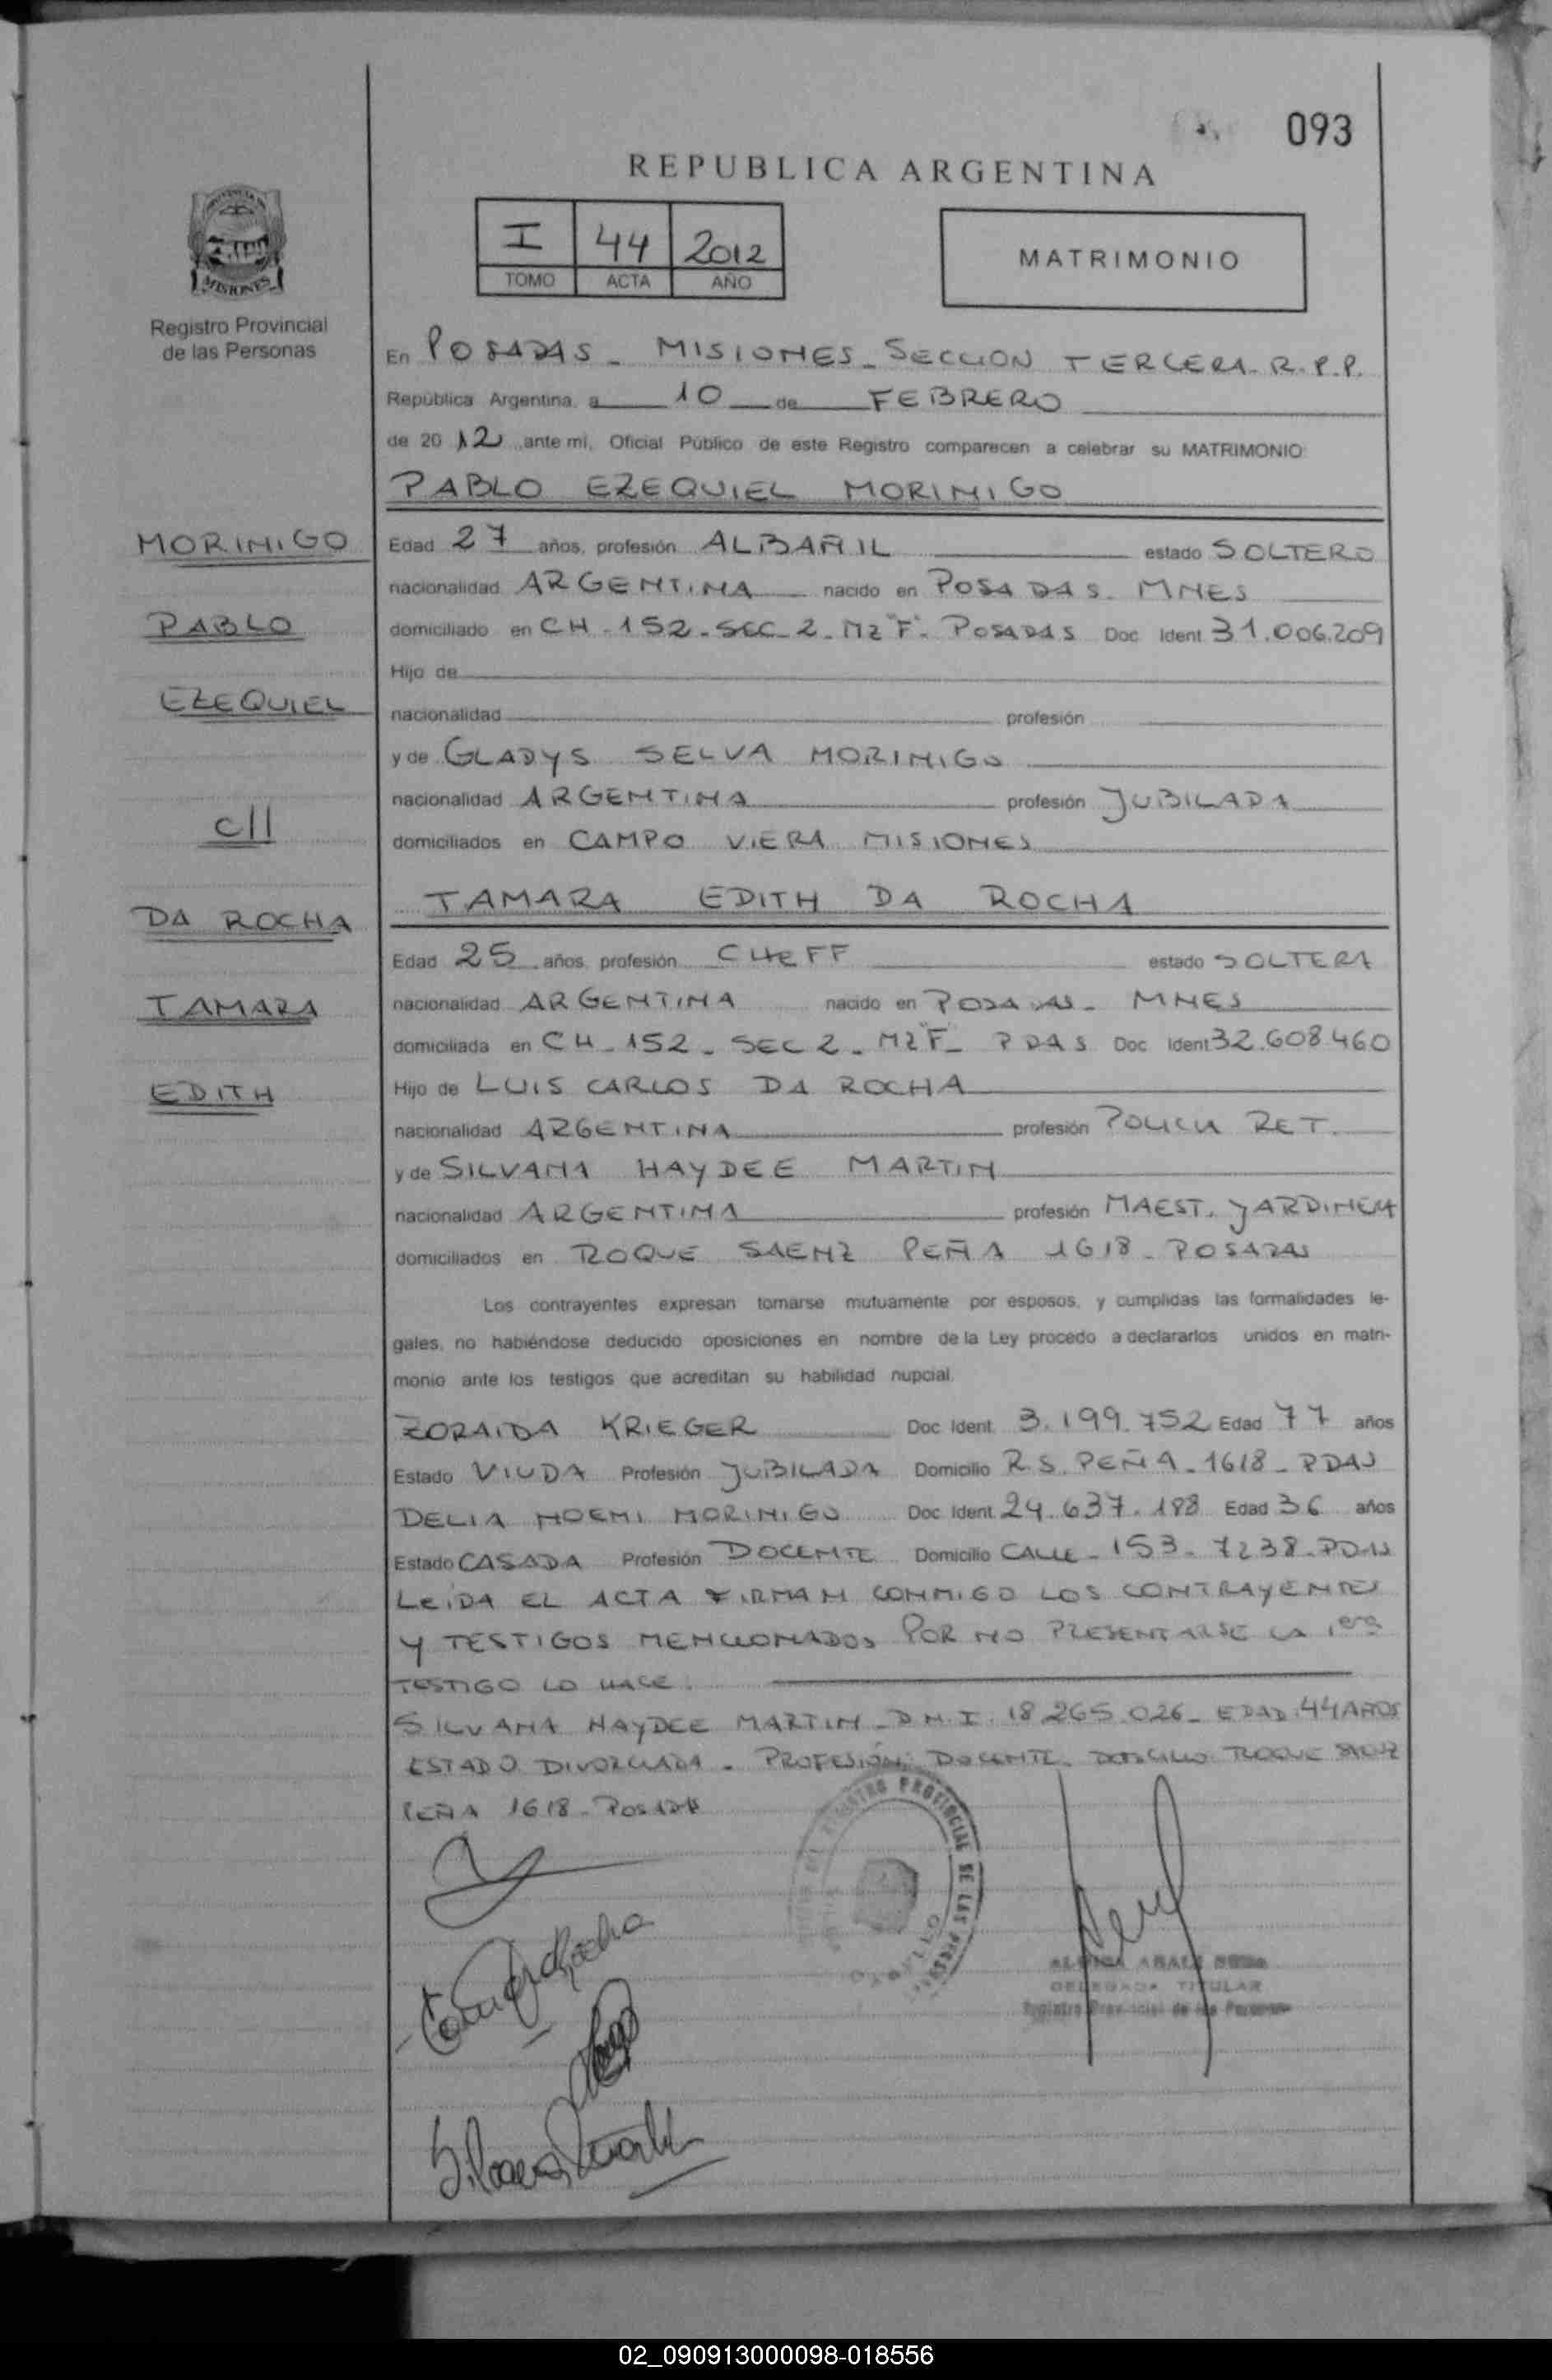 093
REPUBLICA ARGENTINA
I 44 2012
TOMO ACTA AÑO
MATRIMONIO
MISIONES
Registro Provincial
de las Personas
En POSADAS - MISIONES - SECCION TERCERA - R.P.P.
República Argentina, a 10 de FEBRERO
de 2012 ante mi, Oficial Público de este Registro comparecen a celebrar su MATRIMONIO:
PABLO EZEQUIEL MORINIGO
MORINIGO
PABLO
EZEQUIEL
c//
DA ROCHA
TAMARA
EDITH
Edad 27 años, profesión ALBAÑIL estado SOLTERO
nacionalidad ARGENTINA nacido en POSADAS. MNES
domiciliado en CH - 152 - SEC - 2 - MZ "F" - POSADAS Doc. Ident. 31.006.209
Hijo de
nacionalidad profesión
y de GLADYS SELVA MORINIGO
nacionalidad ARGENTINA profesión JUBILADA
domiciliados en CAMPO VIERA MISIONES
TAMARA EDITH DA ROCHA
Edad 25 años, profesión CHEFF estado SOLTERA
nacionalidad ARGENTINA nacido en POSADAS - MNES
domiciliada en CH - 152 - SEC 2 - MZ "F" - PDAS Doc. Ident. 32.608.460
Hijo de LUIS CARLOS DA ROCHA
nacionalidad ARGENTINA profesión POLICIA RET.
y de SILVANA HAYDEE MARTIN
nacionalidad ARGENTINA profesión MAEST. JARDINERA
domiciliados en ROQUE SAENZ PEÑA 1618 - POSADAS
Los contrayentes expresan tomarse mutuamente por esposos, y cumplidas las formalidades le-
gales, no habiéndose deducido oposiciones en nombre de la Ley procedo a declararlos unidos en matri-
monio ante los testigos que acreditan su habilidad nupcial.
ZORAIDA KRIEGER Doc. Ident. 3.199.752 Edad 77 años
Estado VIUDA Profesión JUBILADA Domicilio R.S. PEÑA - 1618 - PDAS
DELIA NOEMI MORINIGO Doc. Ident. 24.637.188 Edad 36 años
Estado CASADA Profesión DOCENTE Domicilio CALLE - 153 - 7238 - PDAS
LEIDA EL ACTA FIRMAN CONMIGO LOS CONTRAYENTES
Y TESTIGOS MENCIONADOS POR NO PRESENTARSE LA 1era
TESTIGO LO HACE:
SILVANA HAYDEE MARTIN - D.N.I. 18.265.026 - EDAD: 44 AÑOS
ESTADO DIVORCIADA - PROFESIÓN: DOCENTE - DOMICILIO: ROQUE SAENZ
PEÑA 1618 - POSADAS
REGISTRO PROVINCIAL DE LAS
DELEGADA TITULAR
Registro Provincial de las Personas
02_090913000098-018556